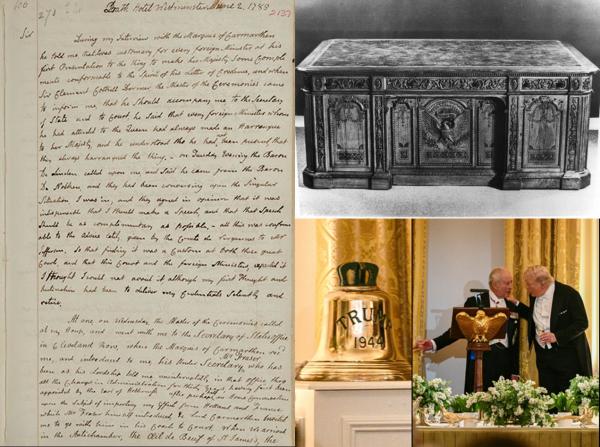 Bath Hotel Westminster June 2. 1785
Sir
During my Interview with the Marquis of Carmarthen
he told me that it was customary for every foreign Minister at his
first Presentation to the King to make his Majesty Some Compli
ments conformable to the Spirit of his Letter of Credence, and when
Sir Clement Cottrell Dormer the Master of the Ceremonies came
to inform me, that he should accompany me to the Secretary
of State and to Court, he said that every foreign Minister whom
he had attended to the Queen had always made an Harrangue
to her Majesty, and he understood tho he had not been present that
they always harrangued the King, - on Tuesday Evening the Baron
De Linden called upon me and Said he came from the Baron
De Nolken, and they had been conversing upon the Singular
Situation I was in, and they agreed in opinion that it was
indispensable that I Should make a Speech, and that that Speech
Should be as complimentary as possible, - all this was conform
able to the advice lately given by the Comte de Vergennes to Mr
Jefferson, So that finding it was a Custom at both these great
Courts and that this Court and the foreign Ministers expected it
I thought I could not avoid it although my first Thought and
Inclination had been to deliver my Credentials Silently and
retire,
At one on Wednesday the Master of the Ceremonies called
at my House, and went with me to the Secretary of States office
in Cleveland Row, when the Marquis of Carmarthen recd
me, and introduced to me, his Under Secretary, who has
Mr Frazier
been as his Lordship told me uninterruptedly in that office thro
all the Changes in Administration for thirty years having first been
appointed by the Earl of Holderness
to go with him in his Coach to Court. When we arrived
in the Antichamber, the Oeil de Beuf of St James's, the
TRUMP
1944